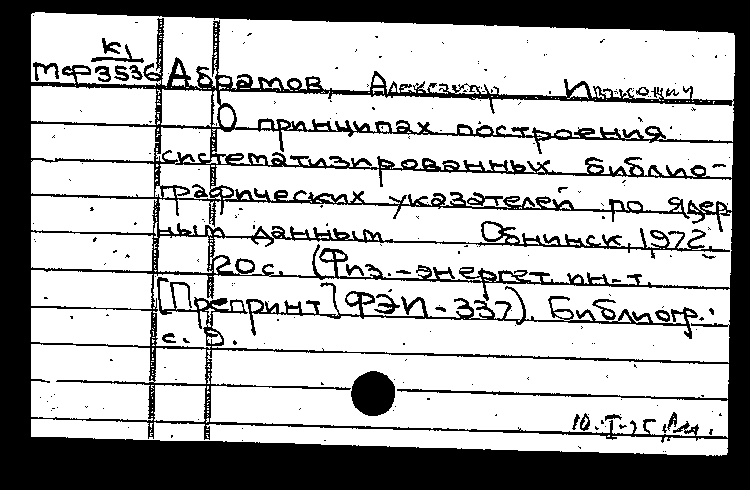 К1
МФ3536 Абрамов, Александр Иванович
О принципах построения
систематизированных библио-
графических указателей по ядер
ным данным. Обнинск, 1972.
20 с. (Физ.-энергет. ин-т.
[Препринт] ФЭИ-337). Библиогр.:
с. 9.
10.I-